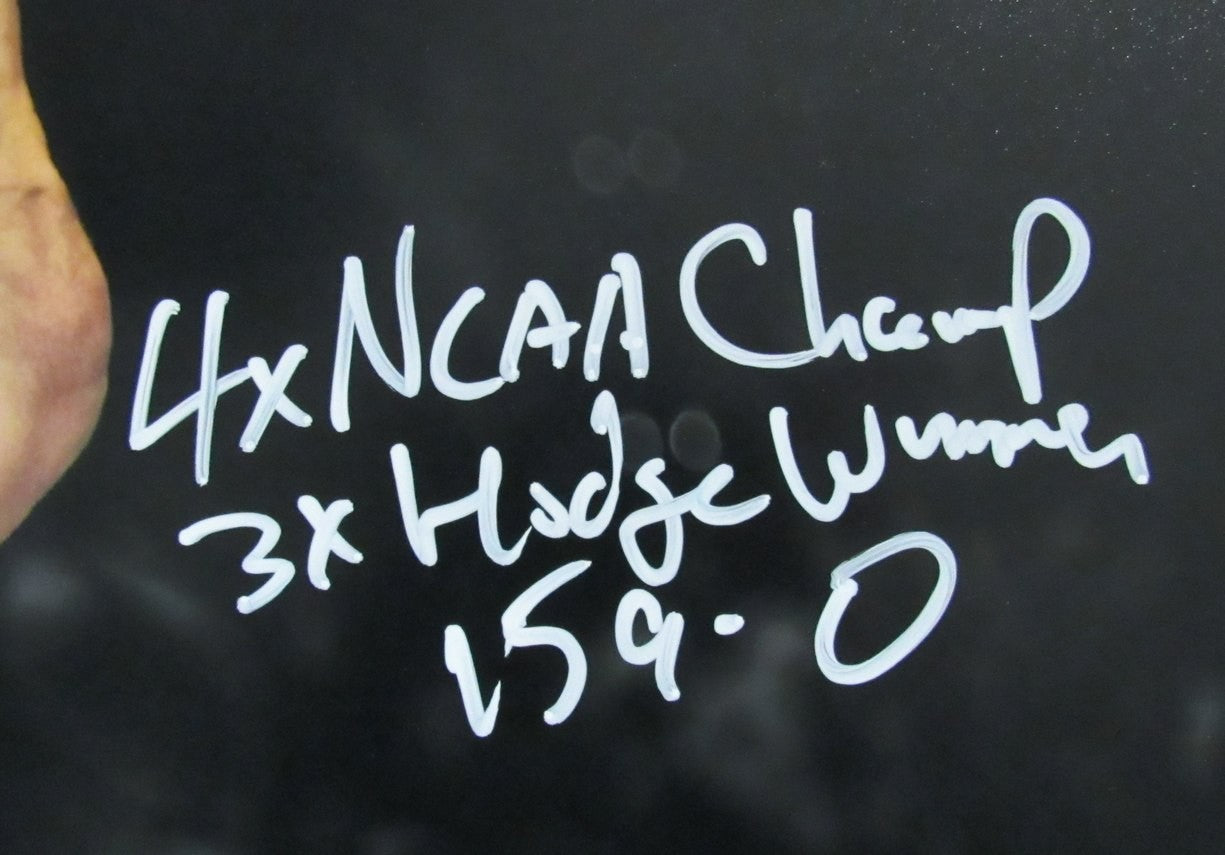 4x NCAA Champ
3x Hodge Winner
159-0